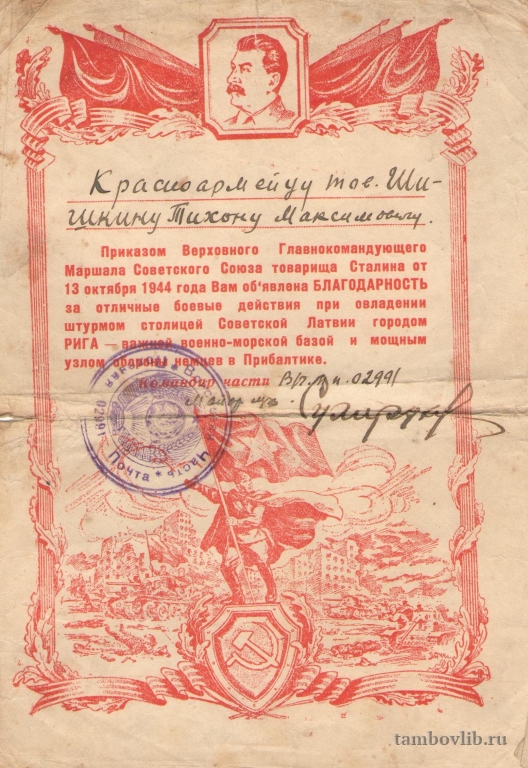 Красноармейцу тов. Ши-
шкину Тихону Максимовичу.
Приказом Верховного Главнокомандующего
Маршала Советского Союза товарища Сталина от
13 октября 1944 года Вам об‘явлена БЛАГОДАРНОСТЬ
за отличные боевые действия при овладении
штурмом столицей Советской Латвии городом
РИГА — важной военно-морской базой и мощным
узлом обороны немцев в Прибалтике.
Командир части В/ч. п.п. 02991
Майор
Почта * часть
02991
tambovlib.ru